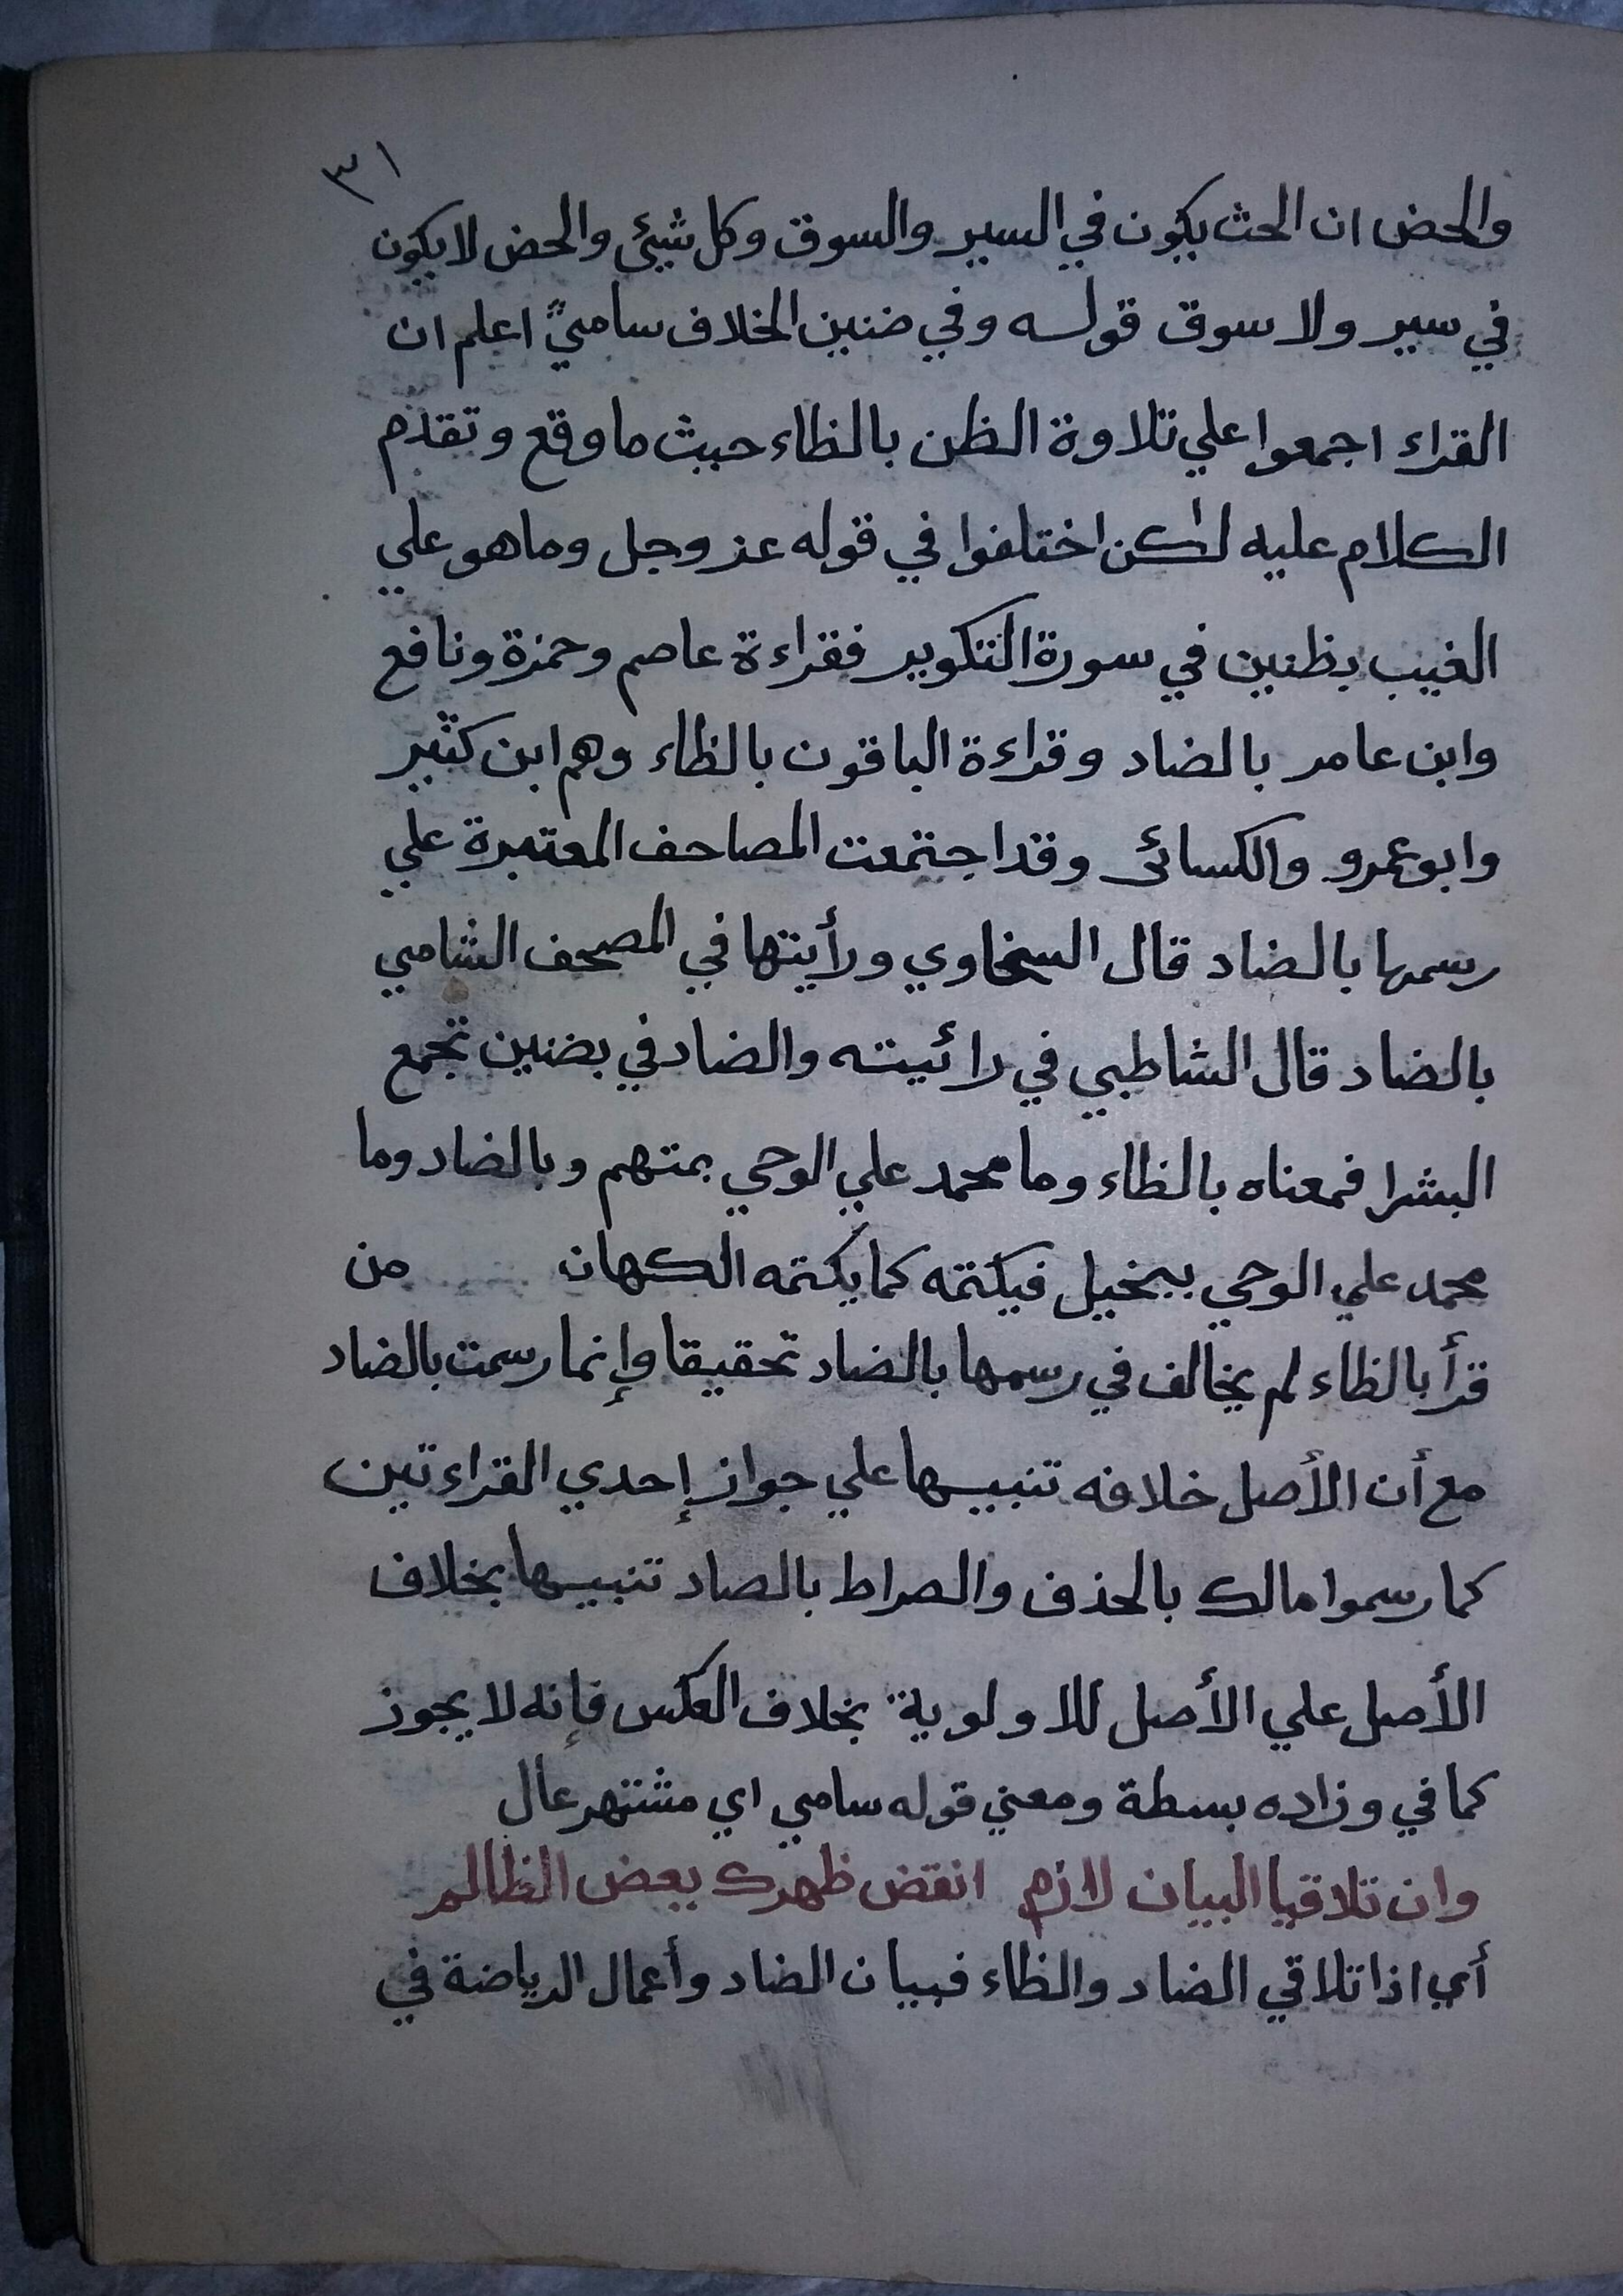 ٣١
والحض ان الحث يكون في السير والسوق وكل شيئ والحض لا يكون
في سير ولا سوق قوله وفي ضنين الخلاف ساميً اعلم ان
القراء اجمعوا علي تلاوة الظن بالظاء حيث ما وقع وتقدم
الكلام عليه لكن اختلفوا في قوله عز وجل وما هو علي
الغيب بظنين في سورة التكوير فقراءة عاصم وحمزة ونافع
وابن عامر بالضاد وقراءة الباقون بالظاء وهم ابن كثير
وابو عمرو والكسائى وقد اجتمعت المصاحف المعتبرة علي
رسمها بالضاد قال السخاوي ورأيتها في المصحف الشامي
بالضاد قال الشاطبي في رائيته والضاد في بضنين تجمع
البشرا فمعناه بالظاء وما محمد علي الوحي بمتهم وبالضاد وما
محمد علي الوحي ببخيل فيكتمه كما يكتمه الكهان من
قرأ بالظاء لم يخالف في رسمها بالضاد تحقيقا وإنما رسمت بالضاد
مع أن الأصل خلافه تنبيها علي جواز إحدي القراءتين
كما رسموا مالك بالحذف والصراط بالصاد تنبيها بخلاف
الأصل علي الأصل للاولوية بخلاف العكس فإنه لا يجوز
كما في وزاده بسطة ومعني قوله سامي اي مشتهر عال
وان تلاقيا البيان لازم انقض ظهرك يعض الظالم
أي اذا تلاقي الضاد والظاء فبيان الضاد وأعمال الرياضة في